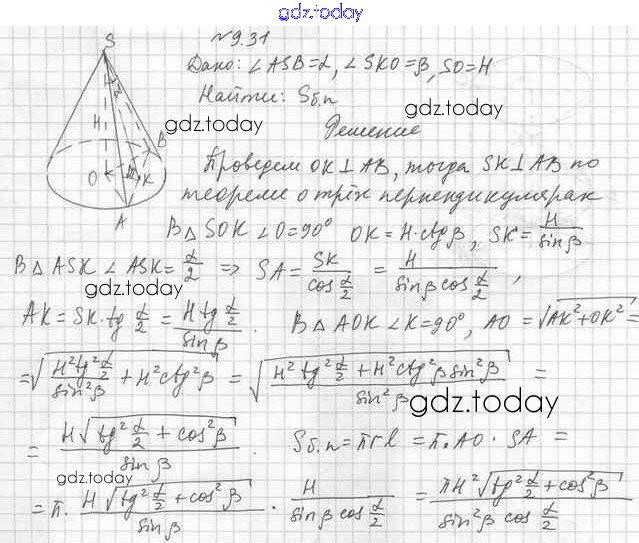 gdz.today
№9.31
Дано: ∠ASB=α, ∠SKO=β, SO=H
Найти: Sб.п
gdz.today
gdz.today
Решение
Проведем OK⊥AB, тогда SK⊥AB по
теореме о трёх перпендикулярах
S
H
α
B
O
K
A
В△ SOK ∠O=90° OK=H·ctgβ, SK=H/sinβ
В△ ASK ∠ASK=α/2 ⇒ SA=SK/cos α/2 = H/(sinβ cos α/2),
gdz.today
AK=SK·tg α/2 = H tg α/2 / sinβ. В△ AOK ∠K=90°, AO=√(AK²+OK²)=
=√(H²tg² α/2 / sin²β + H²ctg²β) = √((H²tg² α/2 + H²ctg²β sin²β)/sin²β) =
gdz.today
= H√(tg² α/2 + cos²β) / sinβ. Sб.п=πrl=π·AO·SA=
gdz.today
=π· H√(tg² α/2 + cos²β) / sinβ · H/(sinβ cos α/2) = πH²√(tg² α/2 + cos²β) / (sin²β cos α/2)
gdz.today